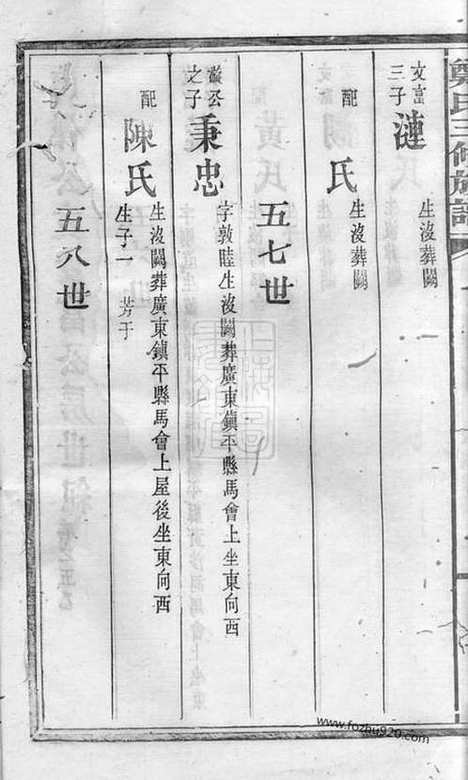 鄭氏三修族譜
文富三子 漣 生沒葬闕
配 氏 生沒葬闕
五七世
公之子 秉忠 字敦睦生沒闕葬廣東鎮平縣馬會上坐東向西
配 陳氏 生沒闕葬廣東鎮平縣馬會上屋後坐東向西
生子一 芳于
五八世
www.fozhu920.com